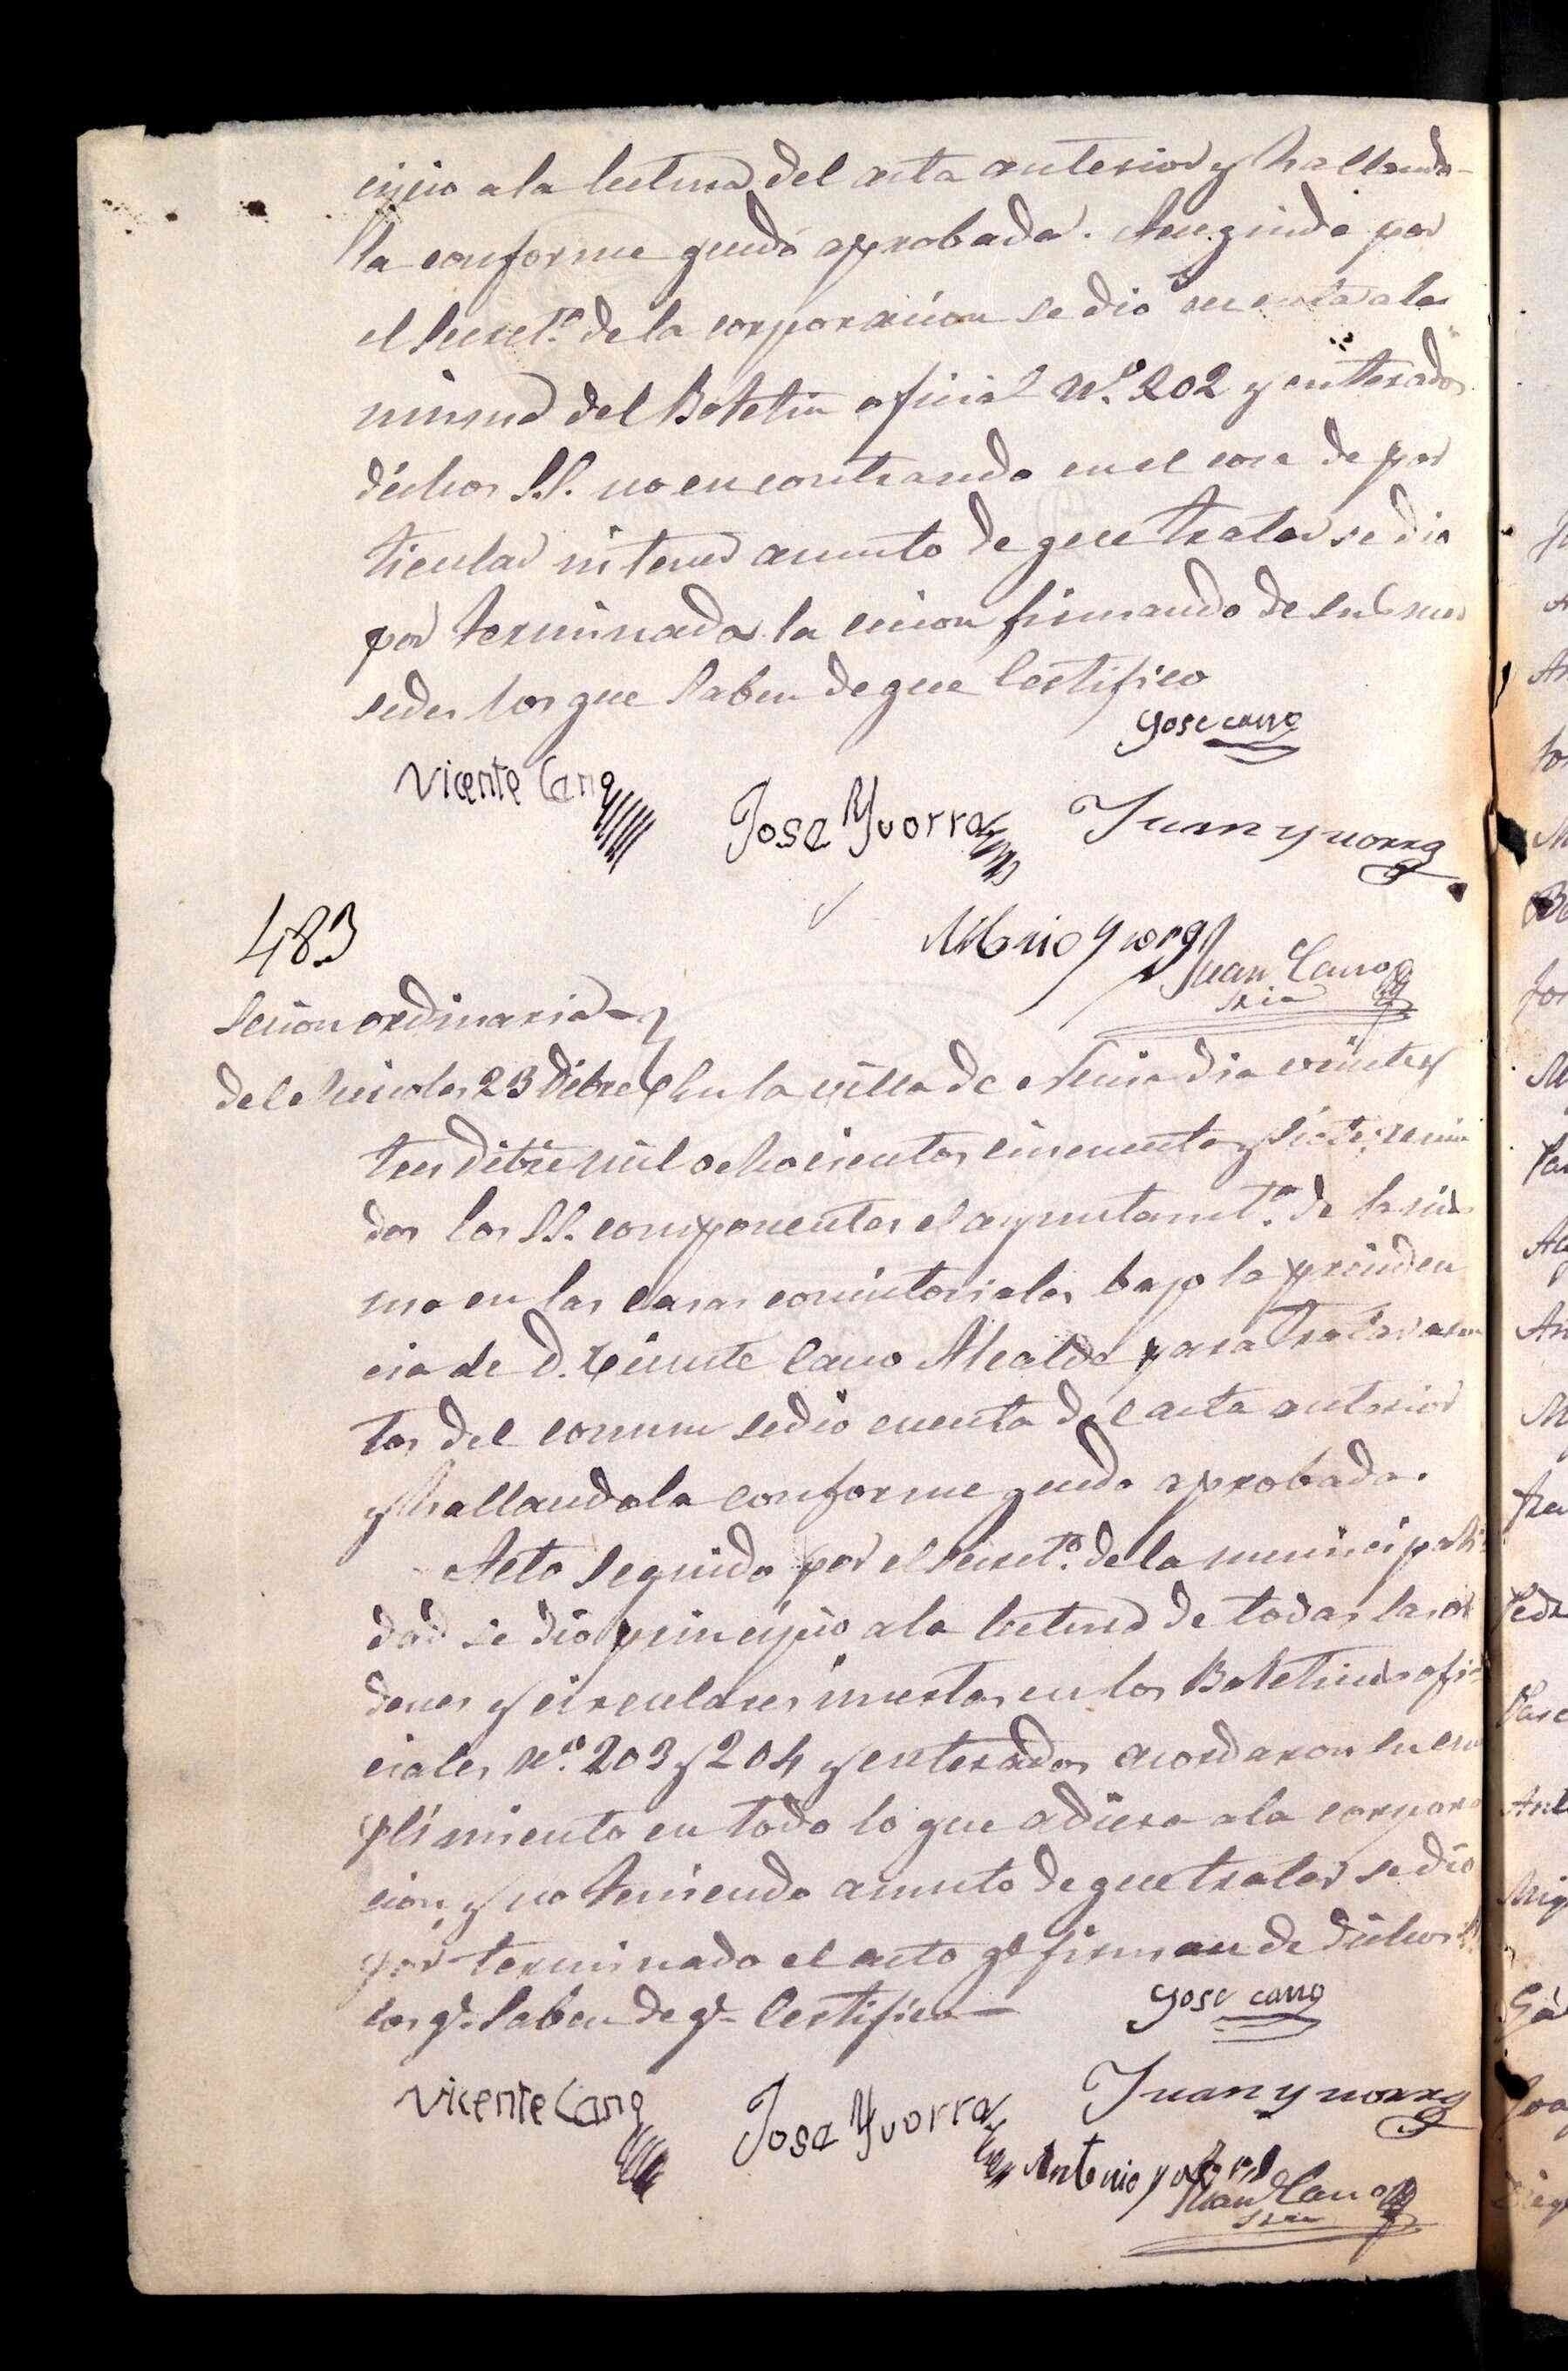 cipio a la lectura del acta anterior y hallando-
la conforme quedó aprobada. Aceguido por
el Secret.º de la corporacion se dió cuenta a la
misma del Boletin oficial N.º 202 y enterados
dichos S.S. no encontrando en el cosa de par
ticular ni tener asunto de que tratar se dio
por terminada la cecion firmando de sus mer
sedes los que saben de que Certifico
Jose cano
Vicente Cano
Jose Yvorra
Juan yvorra
483
Antonio yvorra
Juan Cano
Srio
Secion ordinaria
del Miercoles 23 Dibre
En la villa de Nucia dia veinte y
tres Dibre mil ochocientos cincuenta y siete; reuni
dos los SS. componentes el ayuntamt.º de la mis
ma en las casas concistoriales bajo la preciden
cia de D. Vicente Cano Alcalde para tratar asun
tos del comun se dio cuenta del acta anterior
y hallandola conforme quedo aprobada.
Acto seguido por el Secret.º de la municipali
dad se dio principio a la lectura de todas las or
denes y circulares insertas en los Boletines ofi-
ciales N.º 203 y 204 y enterados acordaron su cum
plimiento en todo lo que adiera a la corpora
cion, y no teniendo asunto de que tratar se dió
por terminado el acto q.e firman de dichos SS.
los q.e saben de q.e Certifico
Jose cano
Vicente Cano
Jose Yvorra
Juan yvorra
Antonio yvorra
Juan Cano
Srio